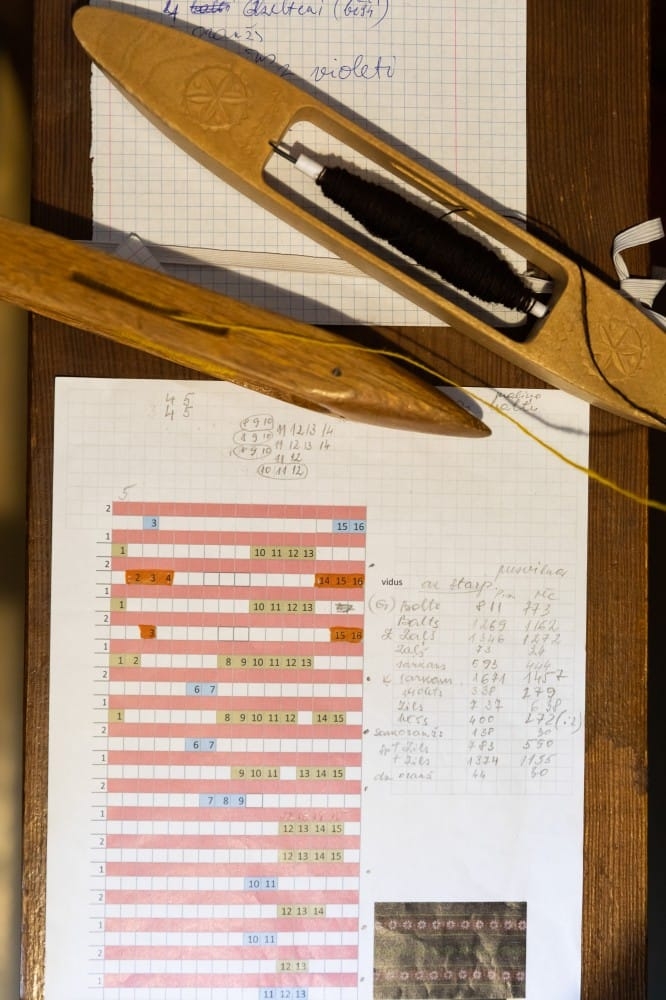 dzelteni (bēši)
oranžs
2 violeti
4 5
4 5
8 9 10 11 12 13 14
8 9 10 11 12 13 14
8 9 10 11 12
10 11 12
5
2
3 15 16
1
1 10 11 12 13
2
2 3 4 14 15 16 vidus
1
1 10 11 12 13
2
3 15 16
1
1 2 8 9 10 11 12 13
2
6 7
1
1 8 9 10 11 12 14 15
2
6 7
1
9 10 11 13 14 15
2
7 8 9
1
12 13 14 15
2
12 13 14 15
1
10 11
2
12 13 14
1
10 11
2
12 13
1
11 12 13
Balts 811 773
Balts 1269 1162
Zaļš 1346 1272
Zaļš 73 24
sarkans 593 444
sarkans 1671 1457
violets 338 279
Zils 737 638
400 272
138 30
Zils 783 590
+ Zils 1374 1195
oranž 44 30